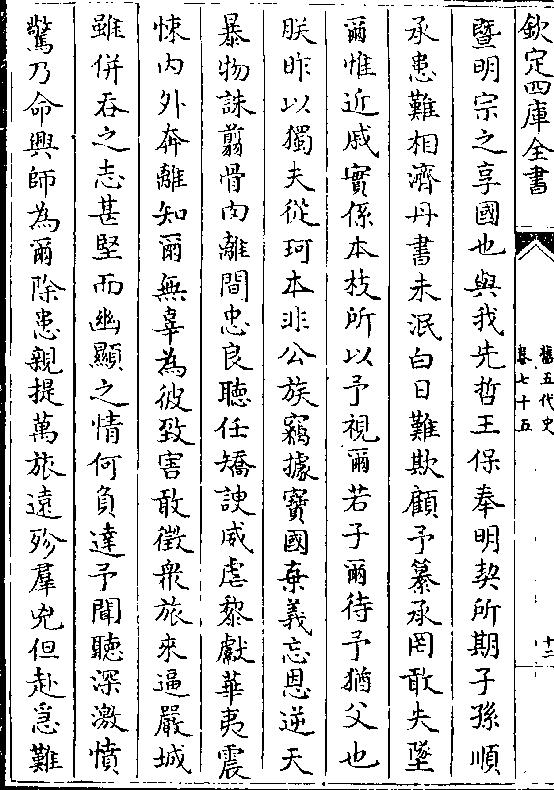 欽定四庫全書
舊五代史
卷七十五
十二
暨明宗之享國也與我先哲王保奉明契所期子孫順
承患難相濟丹書未泯白日難欺顧予纂承罔敢失墜
爾惟近戚實係本枝所以予視爾若子爾待予猶父也
朕昨以獨夫從珂本非公族竊據寶國棄義忘恩逆天
暴物誅翦骨肉離間忠良聽任矯諛威虐黎獻華夷震
悚内外奔離知爾無辜為彼致害敢徵衆旅來逼嚴城
雖併吞之志甚堅而幽顯之情何負達予聞聽深激憤
驚乃命興師為爾除患親提萬旅遠殄羣兇但赴急難